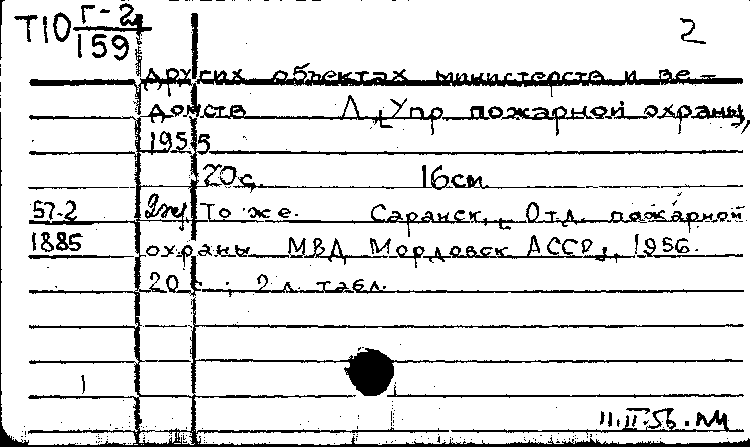 Т10 Г-2 2
159
других объектах министерств и ве-
домств Л., Упр. пожарной охраны,
1955
20с. 16см.
57-2 2экз То же. Саранск, Отд. пожарной
1885 охраны МВД Мордовск АССР, 1956.
20 с.; 2 л. табл.
1
11.II.56.